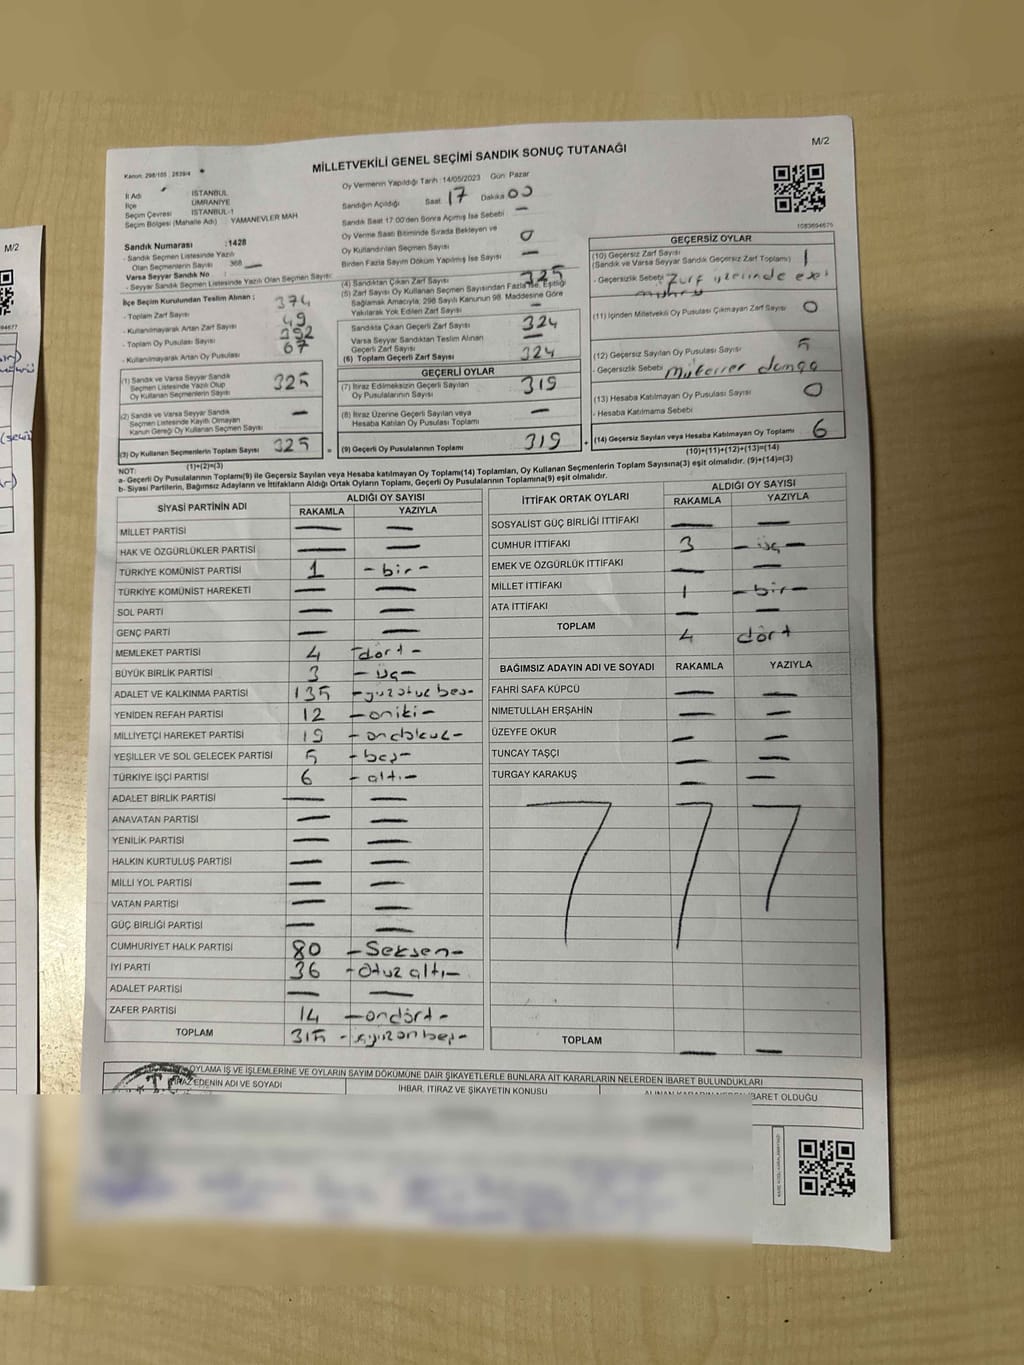 M/2
MİLLETVEKİLİ GENEL SEÇİMİ SANDIK SONUÇ TUTANAĞI
Kanun: 298/105 ; 2839/4
Oy Vermenin Yapıldığı Tarih :14/05/2023 Gün: Pazar
İl Adı İSTANBUL
İlçe ÜMRANİYE
Seçim Çevresi İSTANBUL-1
Seçim Bölgesi (Mahalle Adı) YAMANEVLER MAH
Sandık Numarası :1428
- Sandık Seçmen Listesinde Yazılı
Olan Seçmenlerin Sayısı 368
Varsa Seyyar Sandık No :
- Seyyar Sandık Seçmen Listesinde Yazılı Olan Seçmen Sayısı:
Sandığın Açıldığı Saat 17 Dakika 00
Sandık Saat 17:00'den Sonra Açılmış İse Sebebi —
Oy Verme Saati Bitiminde Sırada Bekleyen ve
Oy Kullandırılan Seçmen Sayısı 0
Birden Fazla Sayım Döküm Yapılmış İse Sayısı —
İlçe Seçim Kurulundan Teslim Alınan ;
- Toplam Zarf Sayısı 374
- Kullanılmayarak Artan Zarf Sayısı 49
- Toplam Oy Pusulası Sayısı 392
- Kullanılmayarak Artan Oy Pusulası 67
(1) Sandık ve Varsa Seyyar Sandık
Seçmen Listesinde Yazılı Olup
Oy Kullanan Seçmenlerin Sayısı 325
(2) Sandık ve Varsa Seyyar Sandık
Seçmen Listesinde Kayıtlı Olmayan
Kanun Gereği Oy Kullanan Seçmen Sayısı —
(3) Oy Kullanan Seçmenlerin Toplam Sayısı 325
(1)+(2)=(3)
(4) Sandıktan Çıkan Zarf Sayısı 325
(5) Zarf Sayısı Oy Kullanan Seçmen Sayısından Fazla İse, Eşitliği
Sağlamak Amacıyla, 298 Sayılı Kanunun 98. Maddesine Göre
Yakılarak Yok Edilen Zarf Sayısı —
Sandıkta Çıkan Geçerli Zarf Sayısı 324
Varsa Seyyar Sandıktan Teslim Alınan
Geçerli Zarf Sayısı —
(6) Toplam Geçerli Zarf Sayısı 324
GEÇERLİ OYLAR
(7) İtiraz Edilmeksizin Geçerli Sayılan
Oy Pusulalarının Sayısı 319
(8) İtiraz Üzerine Geçerli Sayılan veya
Hesaba Katılan Oy Pusulası Toplamı —
= (9) Geçerli Oy Pusulalarının Toplamı 319 +
1083694675
GEÇERSİZ OYLAR
(10) Geçersiz Zarf Sayısı
(Sandık ve Varsa Seyyar Sandık Geçersiz Zarf Toplamı) 1
- Geçersizlik Sebebi Zarf üzerinde
(11) İçinden Milletvekili Oy Pusulası Çıkmayan Zarf Sayısı 0
(12) Geçersiz Sayılan Oy Pusulası Sayısı 5
- Geçersizlik Sebebi Mükerrer damga
(13) Hesaba Katılmayan Oy Pusulası Sayısı 0
- Hesaba Katılmama Sebebi
(14) Geçersiz Sayılan veya Hesaba Katılmayan Oy Toplamı 6
(10)+(11)+(12)+(13)=(14)
NOT:
a- Geçerli Oy Pusulalarının Toplamı(9) ile Geçersiz Sayılan veya Hesaba katılmayan Oy Toplamı(14) Toplamları, Oy Kullanan Seçmenlerin Toplam Sayısına(3) eşit olmalıdır. (9)+(14)=(3)
b- Siyasi Partilerin, Bağımsız Adayların ve İttifakların Aldığı Ortak Oyların Toplamı, Geçerli Oy Pusulalarının Toplamına(9) eşit olmalıdır.
SİYASİ PARTİNİN ADI ALDIĞI OY SAYISI
RAKAMLA YAZIYLA
MİLLET PARTİSİ — —
HAK VE ÖZGÜRLÜKLER PARTİSİ — —
TÜRKİYE KOMÜNİST PARTİSİ 1 -bir-
TÜRKİYE KOMÜNİST HAREKETİ — —
SOL PARTİ — —
GENÇ PARTİ — —
MEMLEKET PARTİSİ 4 -dört-
BÜYÜK BİRLİK PARTİSİ 3 -üç-
ADALET VE KALKINMA PARTİSİ 135 -yüzotuzbeş-
YENİDEN REFAH PARTİSİ 12 -oniki-
MİLLİYETÇİ HAREKET PARTİSİ 19 -ondokuz-
YEŞİLLER VE SOL GELECEK PARTİSİ 5 -beş-
TÜRKİYE İŞÇİ PARTİSİ 6 -altı-
ADALET BİRLİK PARTİSİ — —
ANAVATAN PARTİSİ — —
YENİLİK PARTİSİ — —
HALKIN KURTULUŞ PARTİSİ — —
MİLLİ YOL PARTİSİ — —
VATAN PARTİSİ — —
GÜÇ BİRLİĞİ PARTİSİ — —
CUMHURİYET HALK PARTİSİ 80 -Seksen-
İYİ PARTİ 36 -Otuz altı-
ADALET PARTİSİ — —
ZAFER PARTİSİ 14 -ondört-
TOPLAM 315 -üçyüzonbeş-
İTTİFAK ORTAK OYLARI ALDIĞI OY SAYISI
RAKAMLA YAZIYLA
SOSYALİST GÜÇ BİRLİĞİ İTTİFAKI — —
CUMHUR İTTİFAKI 3 -üç-
EMEK VE ÖZGÜRLÜK İTTİFAKI — —
MİLLET İTTİFAKI 1 -bir-
ATA İTTİFAKI — —
TOPLAM 4 dört
BAĞIMSIZ ADAYIN ADI VE SOYADI RAKAMLA YAZIYLA
FAHRİ SAFA KÜPCÜ — —
NİMETULLAH ERŞAHİN — —
ÜZEYFE OKUR — —
TUNCAY TAŞÇI — —
TURGAY KARAKUŞ — —
TOPLAM — —
OYLAMA İŞ VE İŞLEMLERİNE VE OYLARIN SAYIM DÖKÜMÜNE DAİR ŞİKAYETLERLE BUNLARA AİT KARARLARIN NELERDEN İBARET BULUNDUKLARI
İTİRAZ EDENİN ADI VE SOYADI İHBAR, İTİRAZ VE ŞİKAYETİN KONUSU ALINAN KARARIN NEDEN İBARET OLDUĞU
M/2